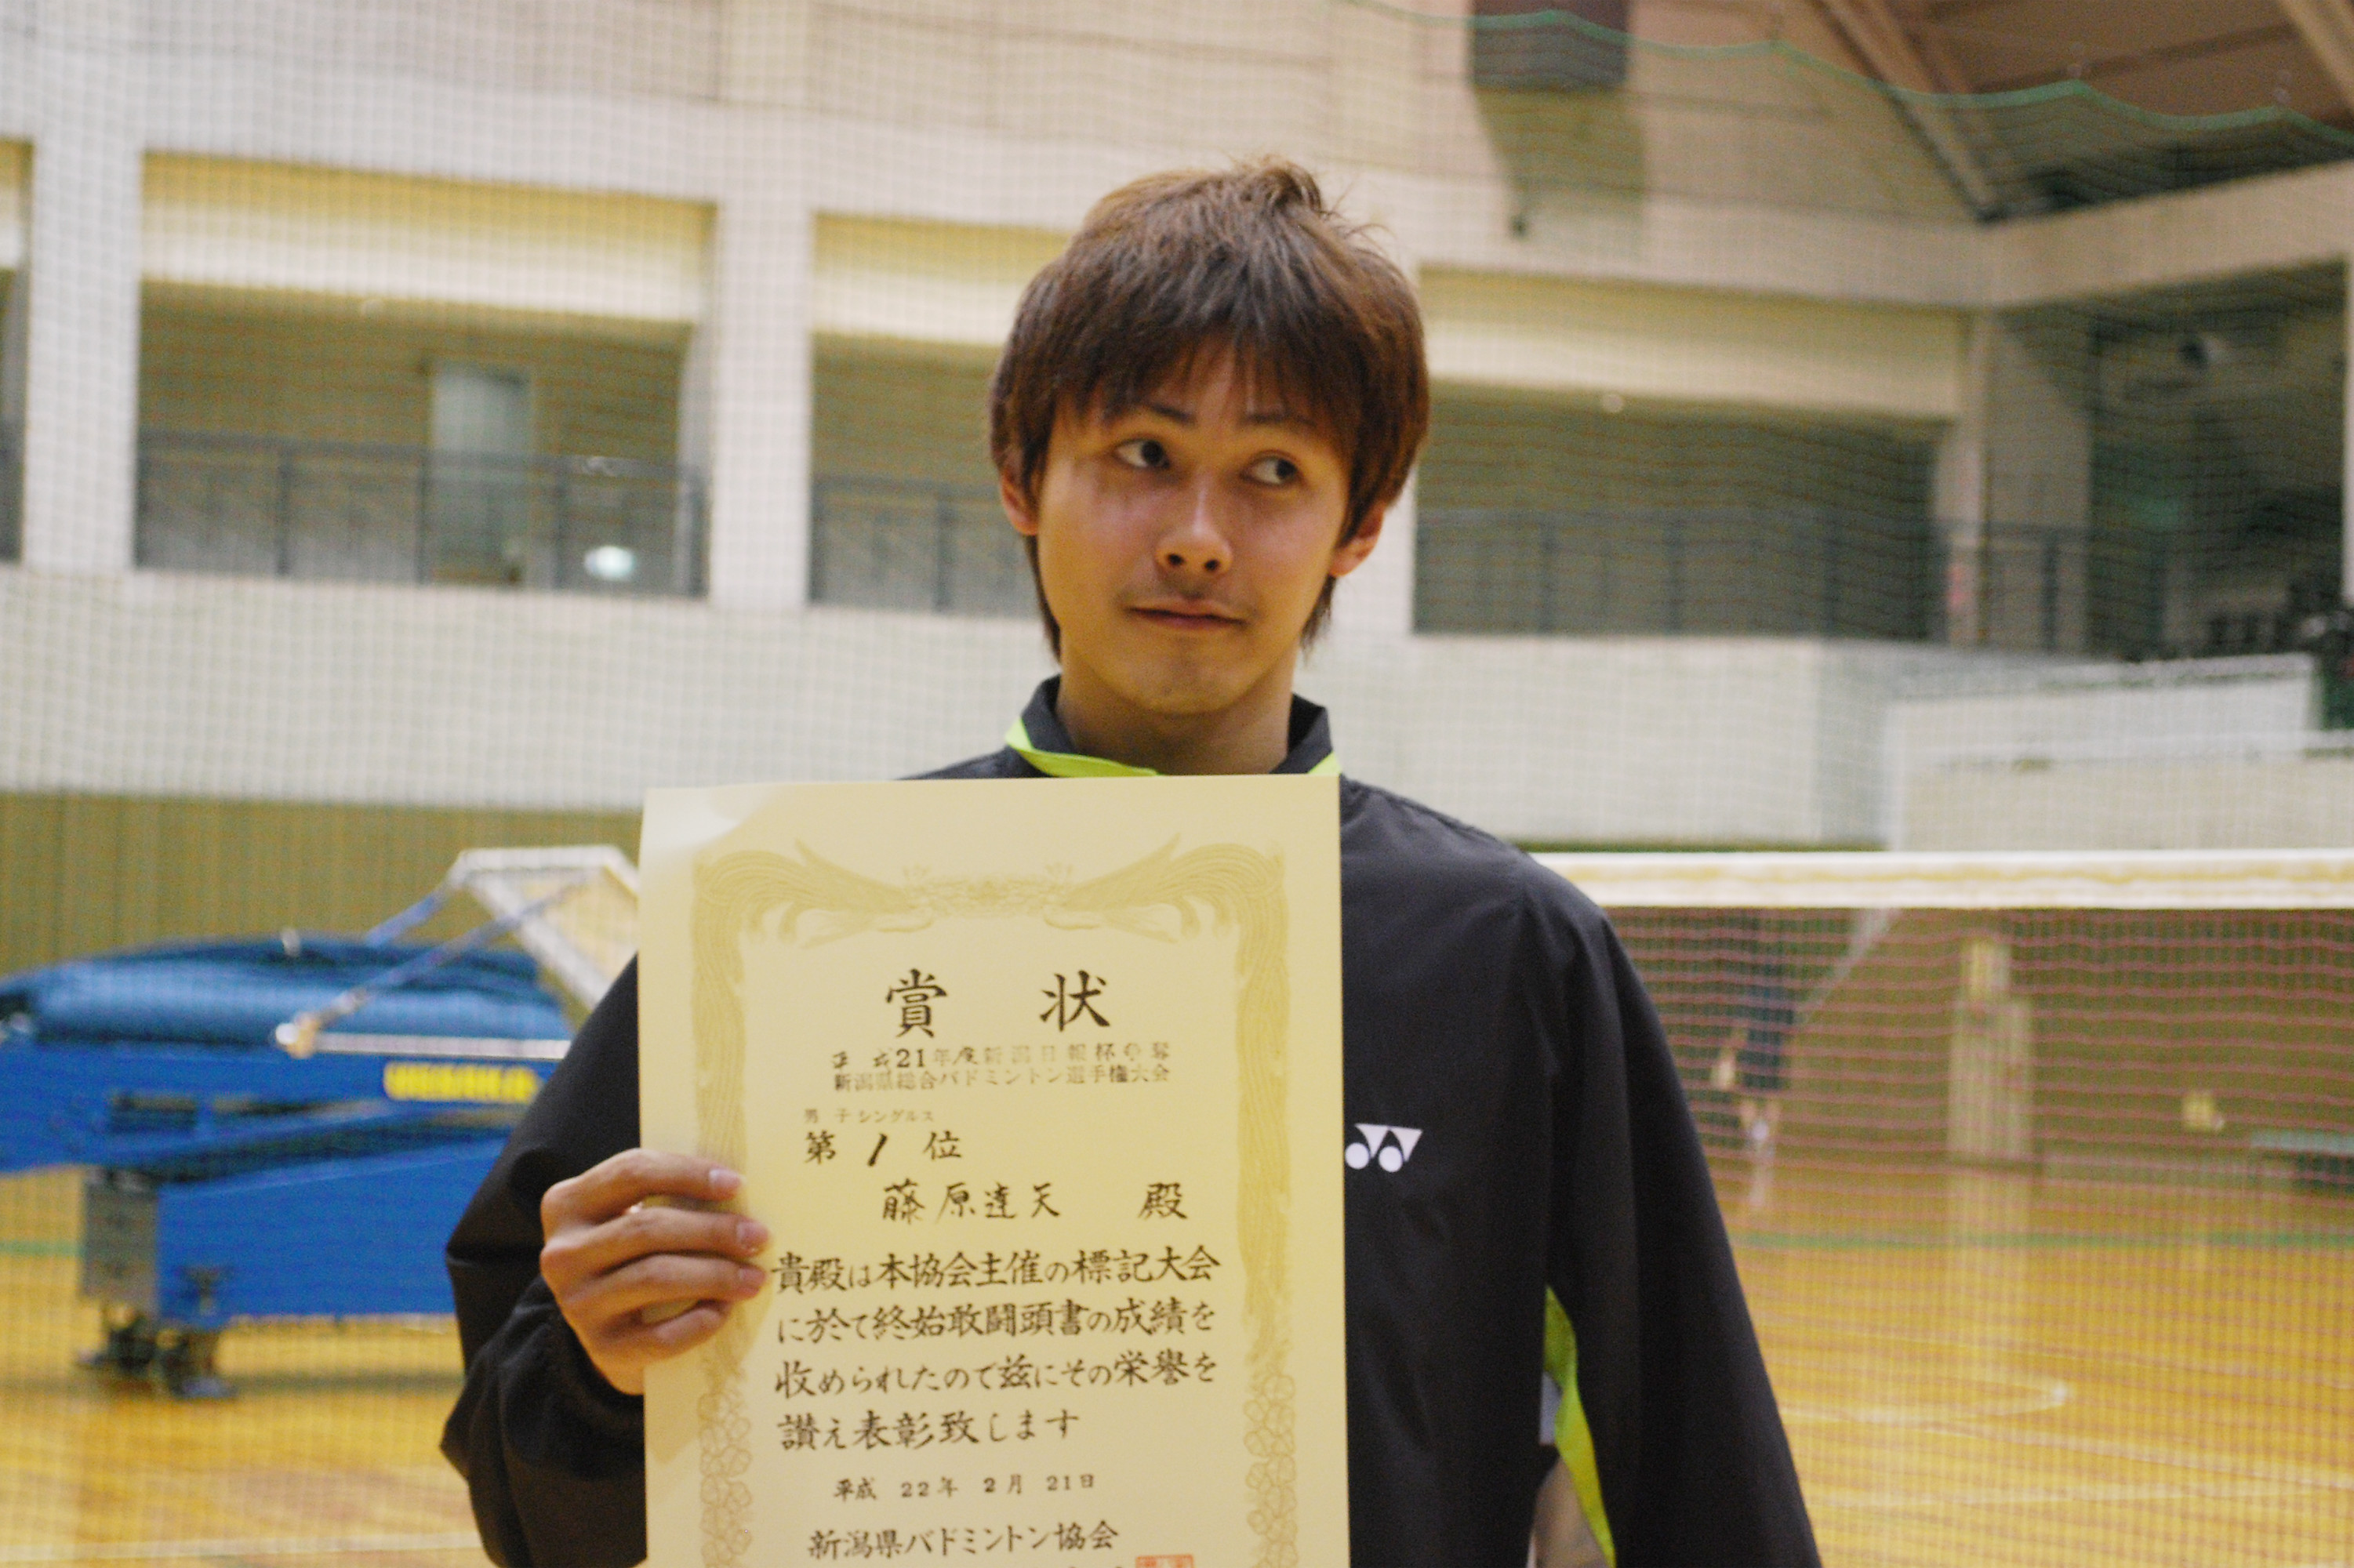 賞状
平成21年度新潟日報杯争奪
新潟県総合バドミントン選手権大会
男子シングルス
第1位
藤原達天 殿
貴殿は本協会主催の標記大会
に於て終始敢闘頭書の成績を
収められたので茲にその栄誉を
讃え表彰致します
平成 22年 2月 21日
新潟県バドミントン協会